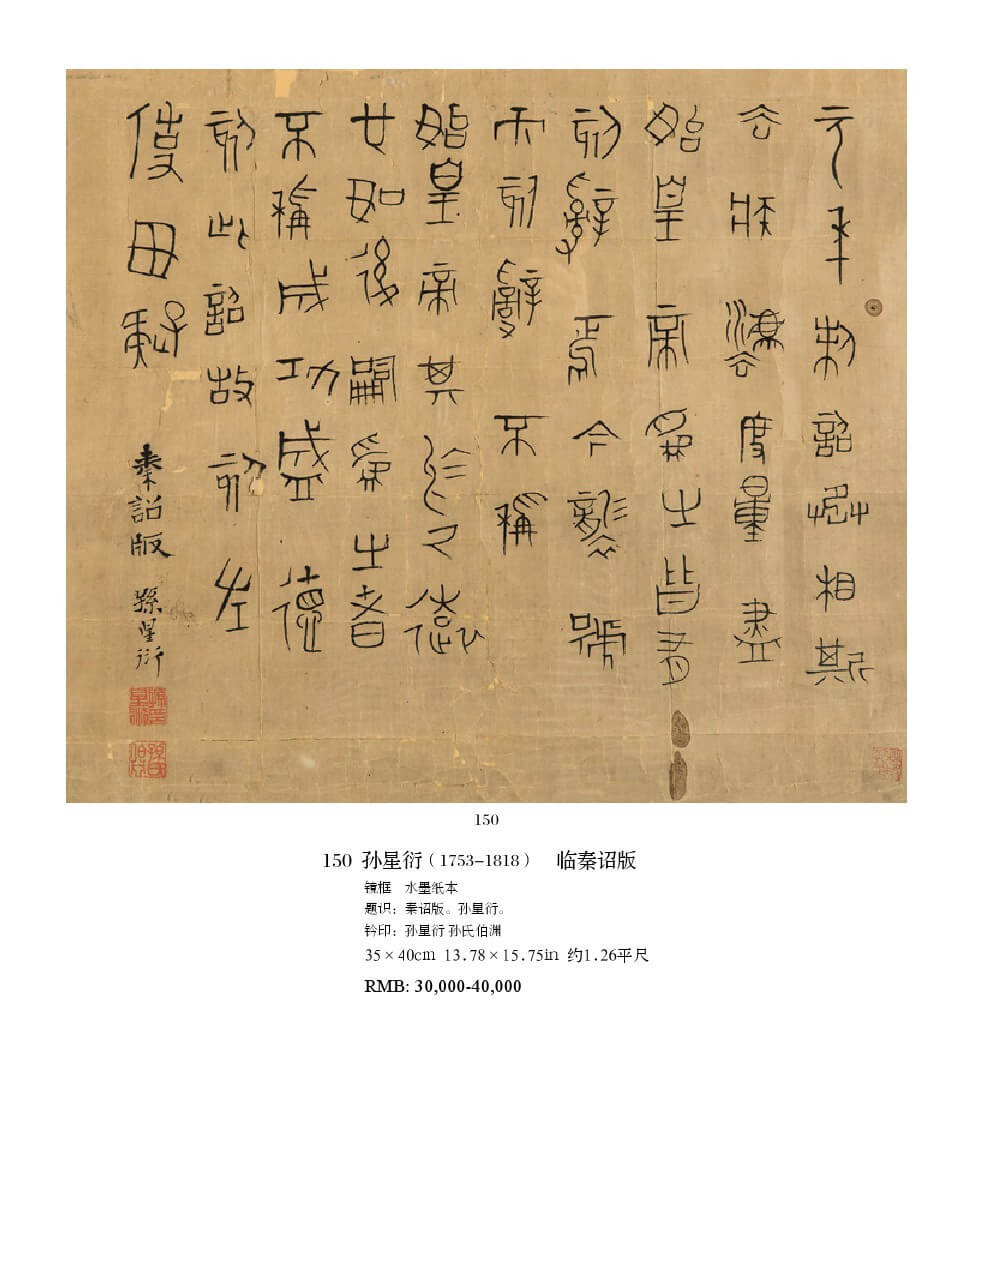 元年制詔丞相斯
去疾灋度量盡
始皇帝為之皆有
刻辭焉今襲號
而刻辭不稱
始皇帝其於久遠
也如後嗣為之者
不稱成功盛德
刻此詔故刻左
使毋疑
秦詔版 孫星衍
150
150 孙星衍（1753–1818） 临秦诏版
镜框 水墨纸本
题识：秦诏版。孙星衍。
钤印：孙星衍 孙氏伯渊
35×40cm 13.78×15.75in 约1.26平尺
RMB: 30,000-40,000